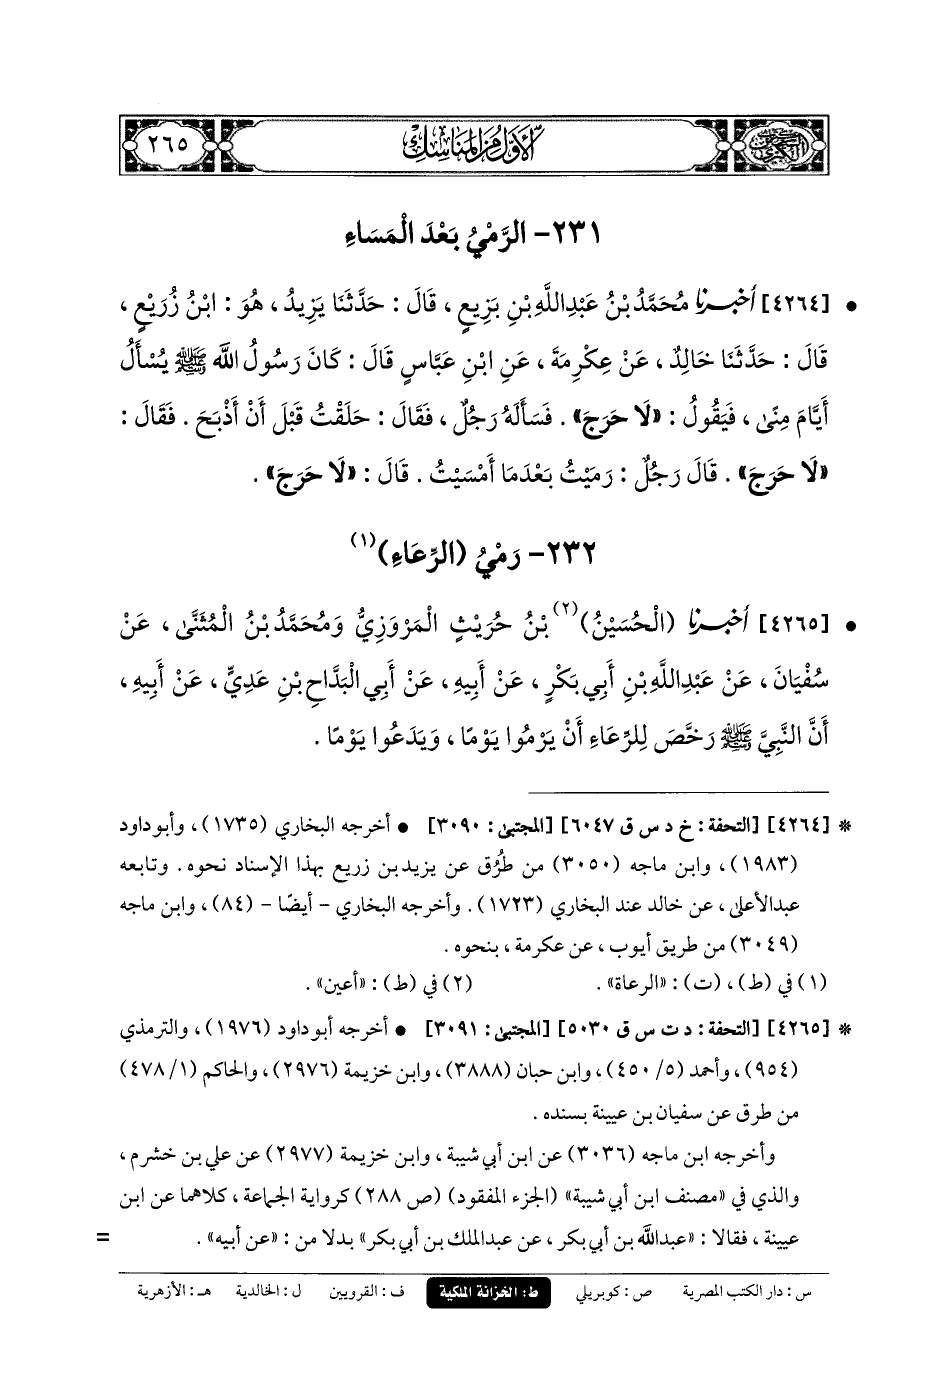 السنن الكبرى الأول من المناسك ٢٦٥
٢٣١- الرَّمْيُ بَعْدَ الْمَسَاءِ
• [٤٢٦٤] أخبرنا مُحَمَّدُ بْنُ عَبْدِاللَّهِ بْنِ بَزِيعٍ ، قَالَ : حَدَّثَنَا يَزِيدُ ، هُوَ : ابْنُ زُرَيْعٍ ،
قَالَ : حَدَّثَنَا خَالِدٌ ، عَنْ عِكْرِمَةَ ، عَنِ ابْنِ عَبَّاسٍ قَالَ : كَانَ رَسُولُ اللَّه ﷺ يُسْأَلُ
أَيَّامَ مِنًى ، فَيَقُولُ : «لَا حَرَجَ» . فَسَأَلَهُ رَجُلٌ ، فَقَالَ : حَلَقْتُ قَبْلَ أَنْ أَذْبَحَ . فَقَالَ :
«لَا حَرَجَ» . قَالَ رَجُلٌ : رَمَيْتُ بَعْدَمَا أَمْسَيْتُ . قَالَ : «لَا حَرَجَ» .
٢٣٢- رَمْيُ (الرِّعَاءِ)(١)
• [٤٢٦٥] أخبرنا (الْحُسَيْنُ)(٢) بْنُ حُرَيْثٍ الْمَرْوَزِيُّ وَمُحَمَّدُ بْنُ الْمُثَنَّى ، عَنْ
سُفْيَانَ ، عَنْ عَبْدِاللَّهِ بْنِ أَبِي بَكْرٍ ، عَنْ أَبِيهِ ، عَنْ أَبِي الْبَدَّاحِ بْنِ عَدِيٍّ ، عَنْ أَبِيهِ ،
أَنَّ النَّبِيَّ ﷺ رَخَّصَ لِلرِّعَاءِ أَنْ يَرْمُوا يَوْمًا ، وَيَدَعُوا يَوْمًا .
* [٤٢٦٤] [التحفة : خ د س ق ٦٠٤٧] [المجتبى : ٣٠٩٠] • أخرجه البخاري (١٧٣٥) ، وأبو داود
(١٩٨٣) ، وابن ماجه (٣٠٥٠) من طُرُق عن يزيد بن زريع بهذا الإسناد نحوه . وتابعه
عبدالأعلى ، عن خالد عند البخاري (١٧٢٣) . وأخرجه البخاري - أيضًا - (٨٤) ، وابن ماجه
(٣٠٤٩) من طريق أيوب ، عن عكرمة ، بنحوه .
(١) في (ط) ، (ت) : «الرعاة» . (٢) في (ط) : «أعين» .
* [٤٢٦٥] [التحفة : د ت س ق ٥٠٣٠] [المجتبى : ٣٠٩١] • أخرجه أبو داود (١٩٧٦) ، والترمذي
(٩٥٤) ، وأحمد (٥/ ٤٥٠) ، وابن حبان (٣٨٨٨) ، وابن خزيمة (٢٩٧٦) ، والحاكم (١/ ٤٧٨)
من طرق عن سفيان بن عيينة بسنده .
وأخرجه ابن ماجه (٣٠٣٦) عن ابن أبي شيبة ، وابن خزيمة (٢٩٧٧) عن علي بن خشرم ،
والذي في «مصنف ابن أبي شيبة» (الجزء المفقود) (ص ٢٨٨) كرواية الجماعة ، كلاهما عن ابن
عيينة ، فقالا : «عبدالله بن أبي بكر ، عن عبدالملك بن أبي بكر» بدلا من : «عن أبيه» . =
س : دار الكتب المصرية ص : كوبريلي ط : الخزانة الملكية ف : القرويين ل : الخالدية هـ : الأزهرية